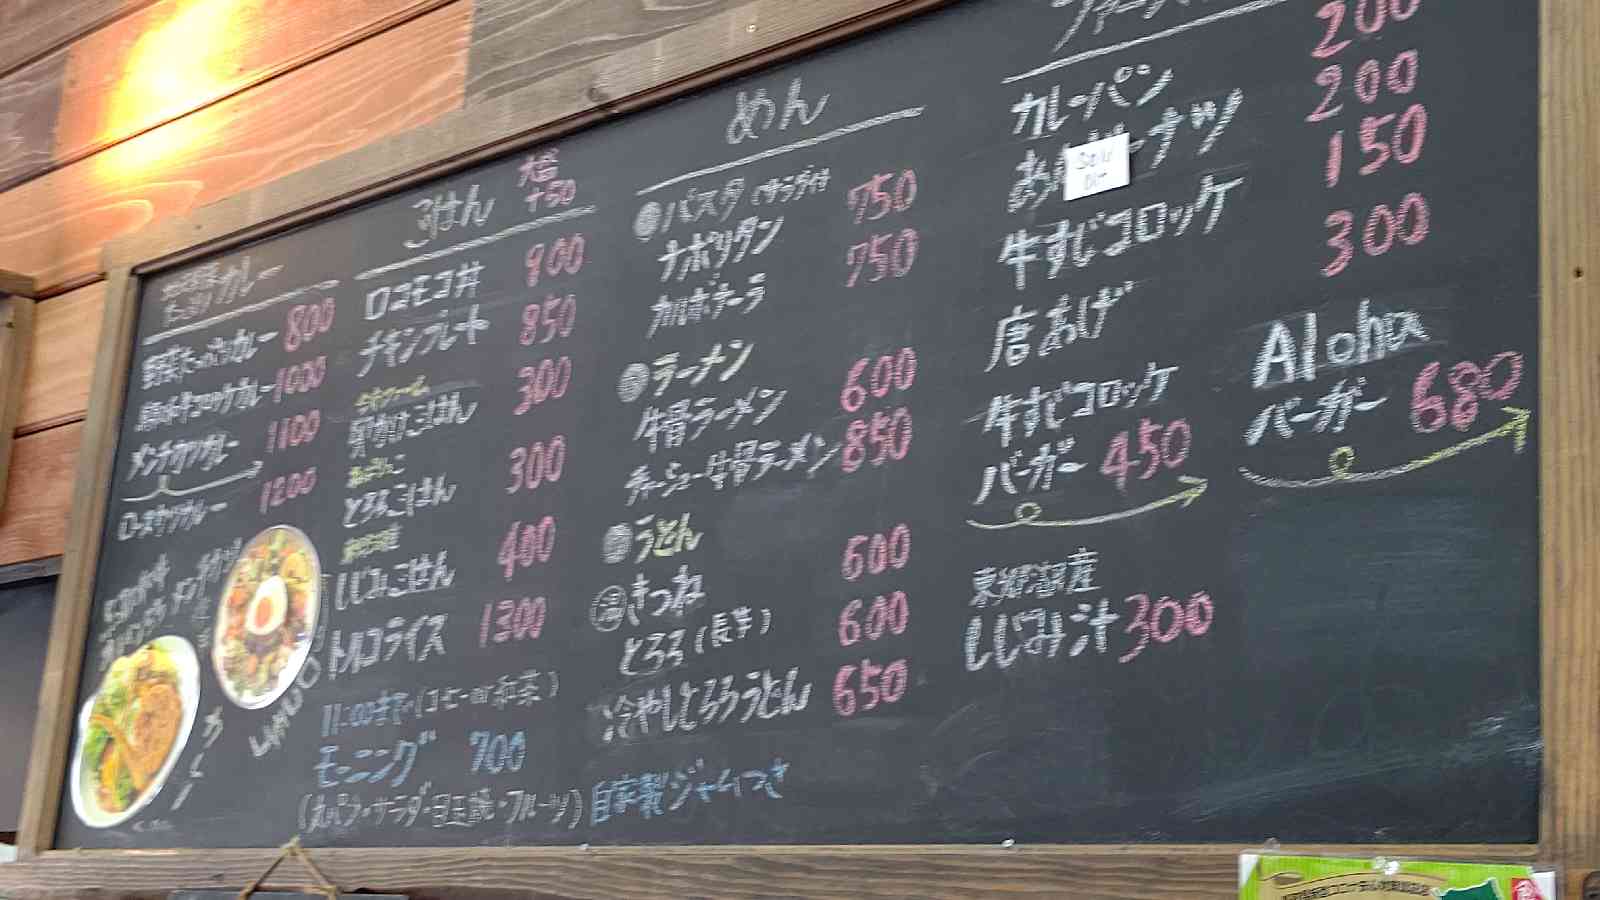 カレー
野菜たっぷりカレー 800
1000
メンチカツカレー 1100
ロースカツカレー 1200
ごはん 大盛 +50
ロコモコ丼 900
チキンプレート 850
卵かけごはん 300
とろろごはん 300
しじみごはん 400
トルコライス 1300
11:00まで(コーヒーor紅茶)
モーニング 700
(丸パン・サラダ・目玉焼・フルーツ) 自家製ジャムつき
めん
パスタ (サラダ付
ナポリタン 750
カルボナーラ 750
ラーメン
牛骨ラーメン 600
チャーシュー牛骨ラーメン 850
うどん
温 きつね 600
とろろ(長芋) 600
冷やしとろろうどん 650
200
カレーパン 200
ーナツ 150
Sold
Out
牛すじコロッケ 300
唐あげ
牛すじコロッケ
バーガー 450
Aloha
バーガー 680
東郷湖産
しじみ汁 300